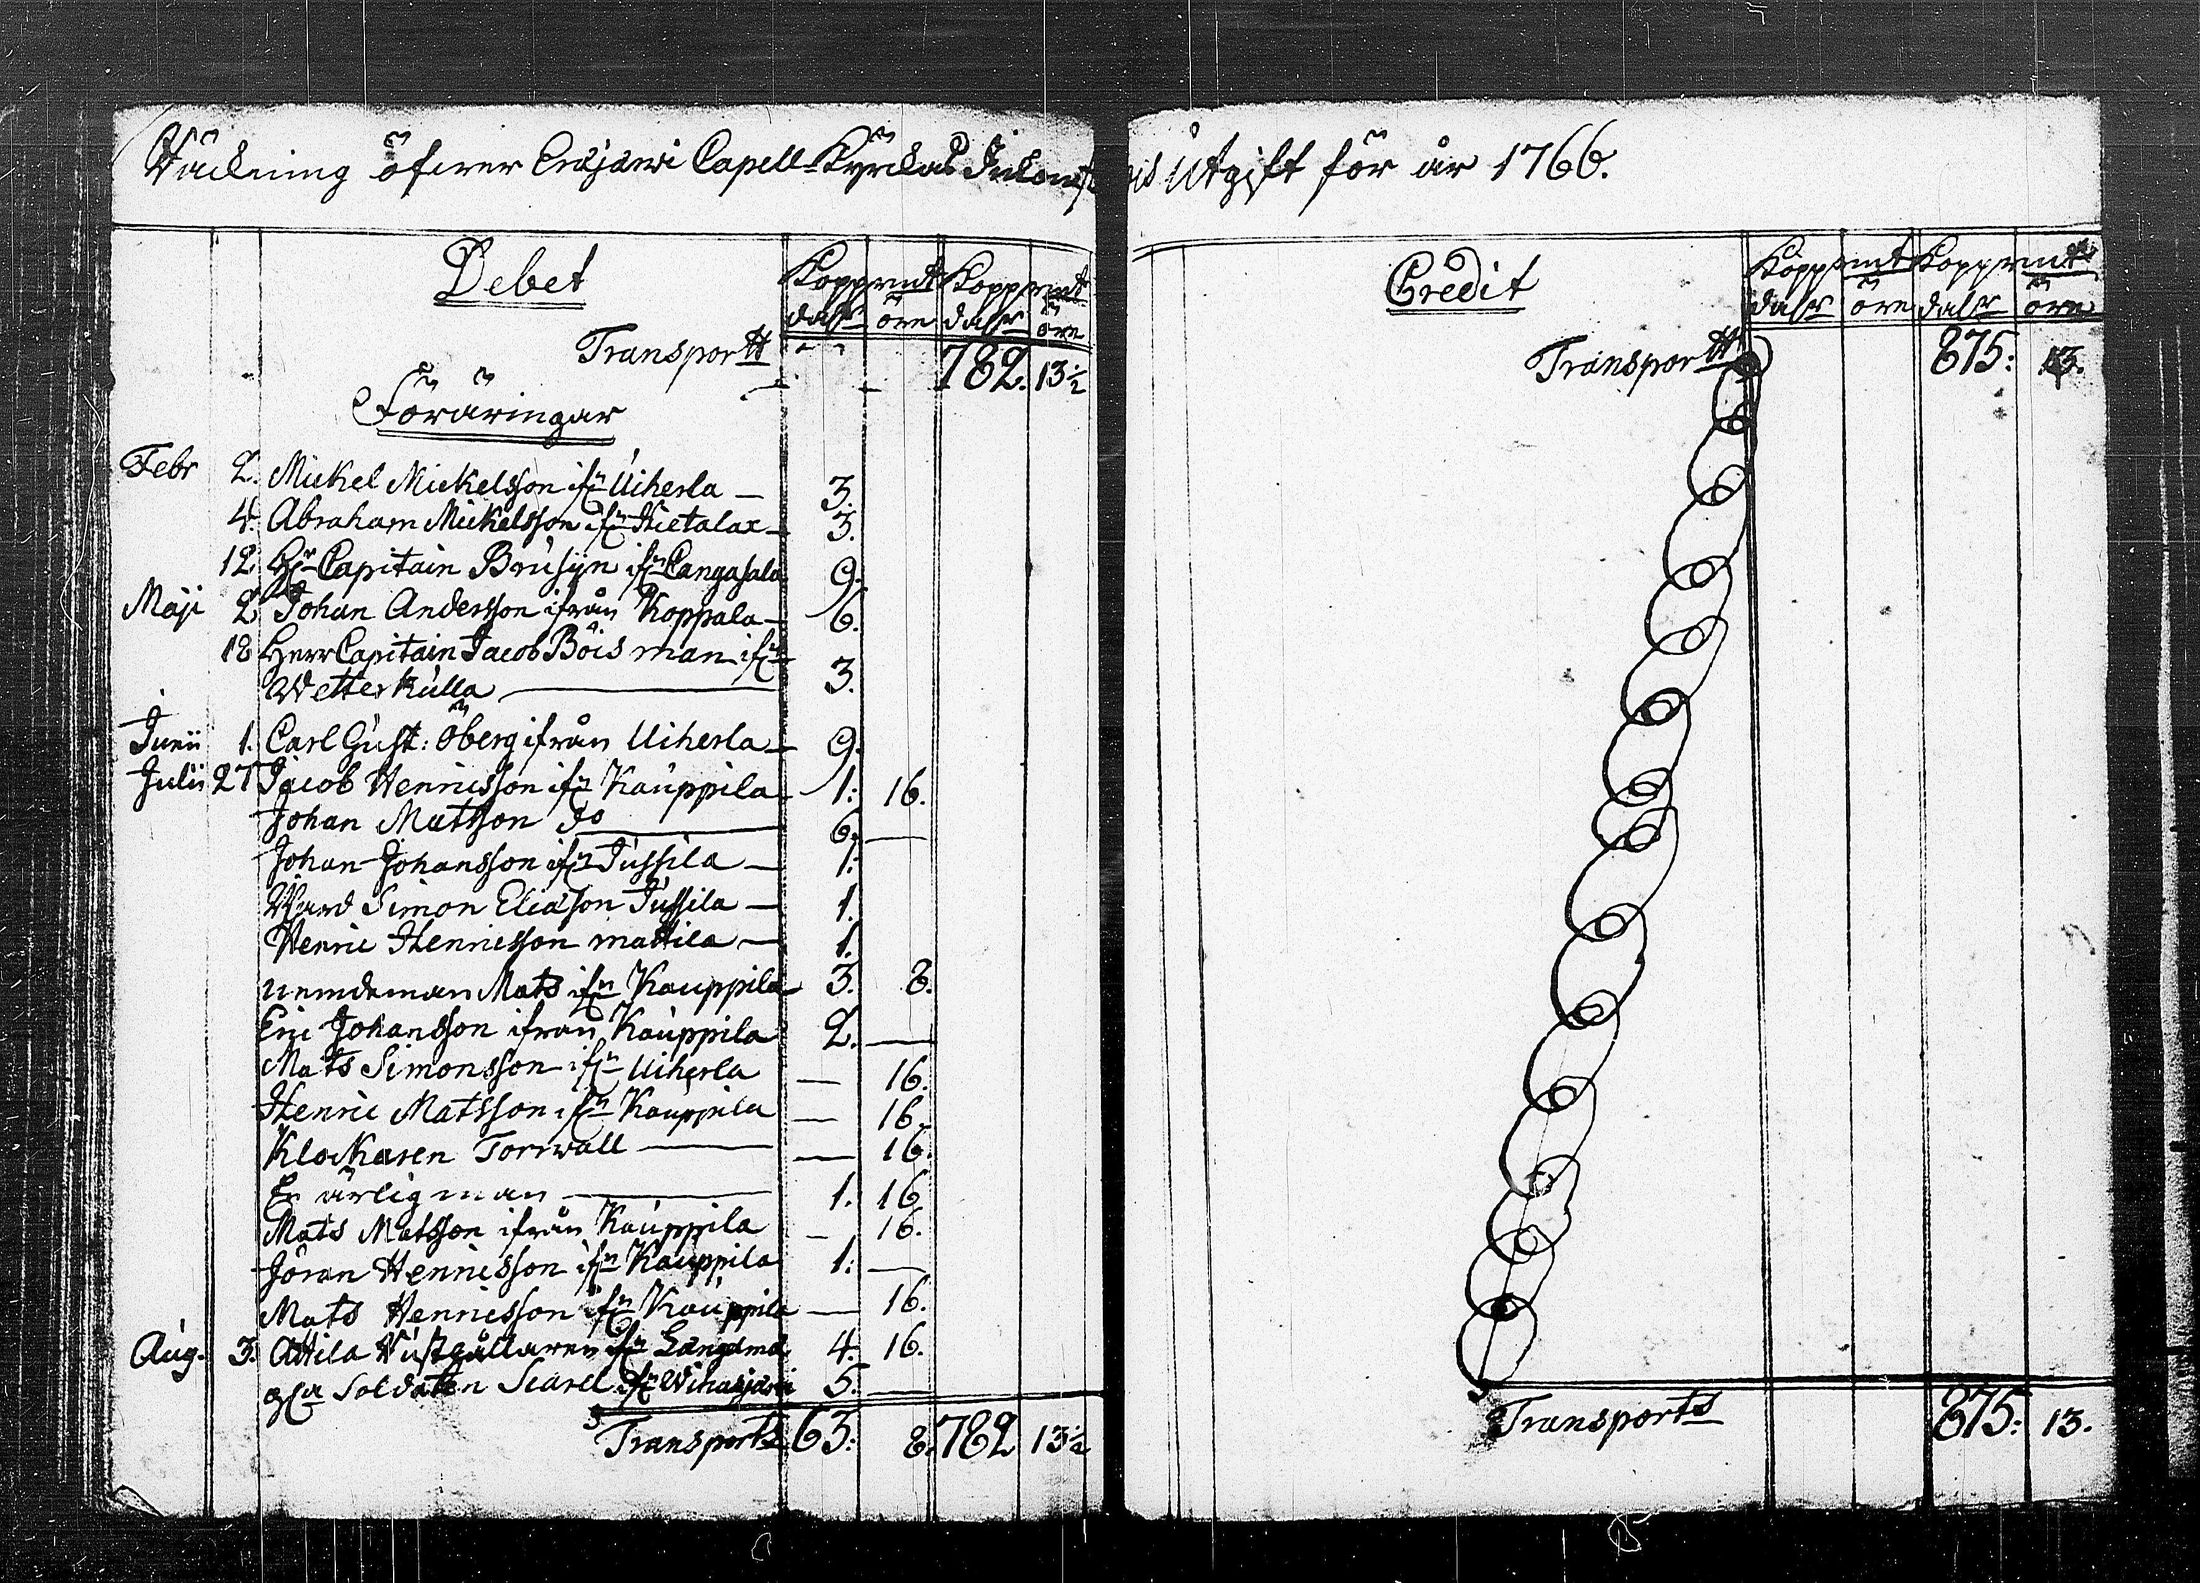 Räckning öfwer Eräjärwi Capell-Kyrckas Inkomst och Utgift för år 1766.
Debet
Kopprmt Kopprmt
dalr öre dalr öre
Transportt 782. 13½
Föräringar
Febr 2. Mickel Mickelsson ifrn Uiherla — 3.
4. Abraham Mickelsson ifrn Hietalax — 3.
12 Hr Capitain Brusijn ifrn Cangasala 9.
Maji 2 Johan Andersson ifrån Koppala — 6.
18 Herr Capitain Jacob Bois man ifrn
Wetterkulla — 3.
Junii 1. Carl Gust: Öberg ifrån Uiherla — 9.
Julii 27 Jacob Henricsson ifrn Kauppila 1: 16.
Johan Matsson do — 6. —
Johan Johansson ifrn Jussila — 1.
Wärd Simon Eliasson Jussila — 1.
Henric Henricsson mattila — 1.
nemdeman Mats ifrn Kauppila 3. 8.
Eric Johansson ifrån Kauppila 2. —
Mats Simonsson ifrn Uiherla — 16.
Henric Matsson ifrn Kauppila — 16.
Klockaren Torrwall — — 16.
En ärlig man — 1. 16
Mats Matsson ifrån Kauppila — 16.
Jöran Henricsson ifrn Kauppila 1. —
Mats Henricsson ifrn Kauppila — 16.
Aug. 3. Attila Rustgållaren ifrn Längelmä 4. 16.
Soldaten Scarell ifrn Wihasjärvi 5. —
Transports 63: 8. 782 13½
Credit
Kopprmt Kopprmt
dalr öre dalr öre
Transportt 875: 13.
Transports 875: 13.